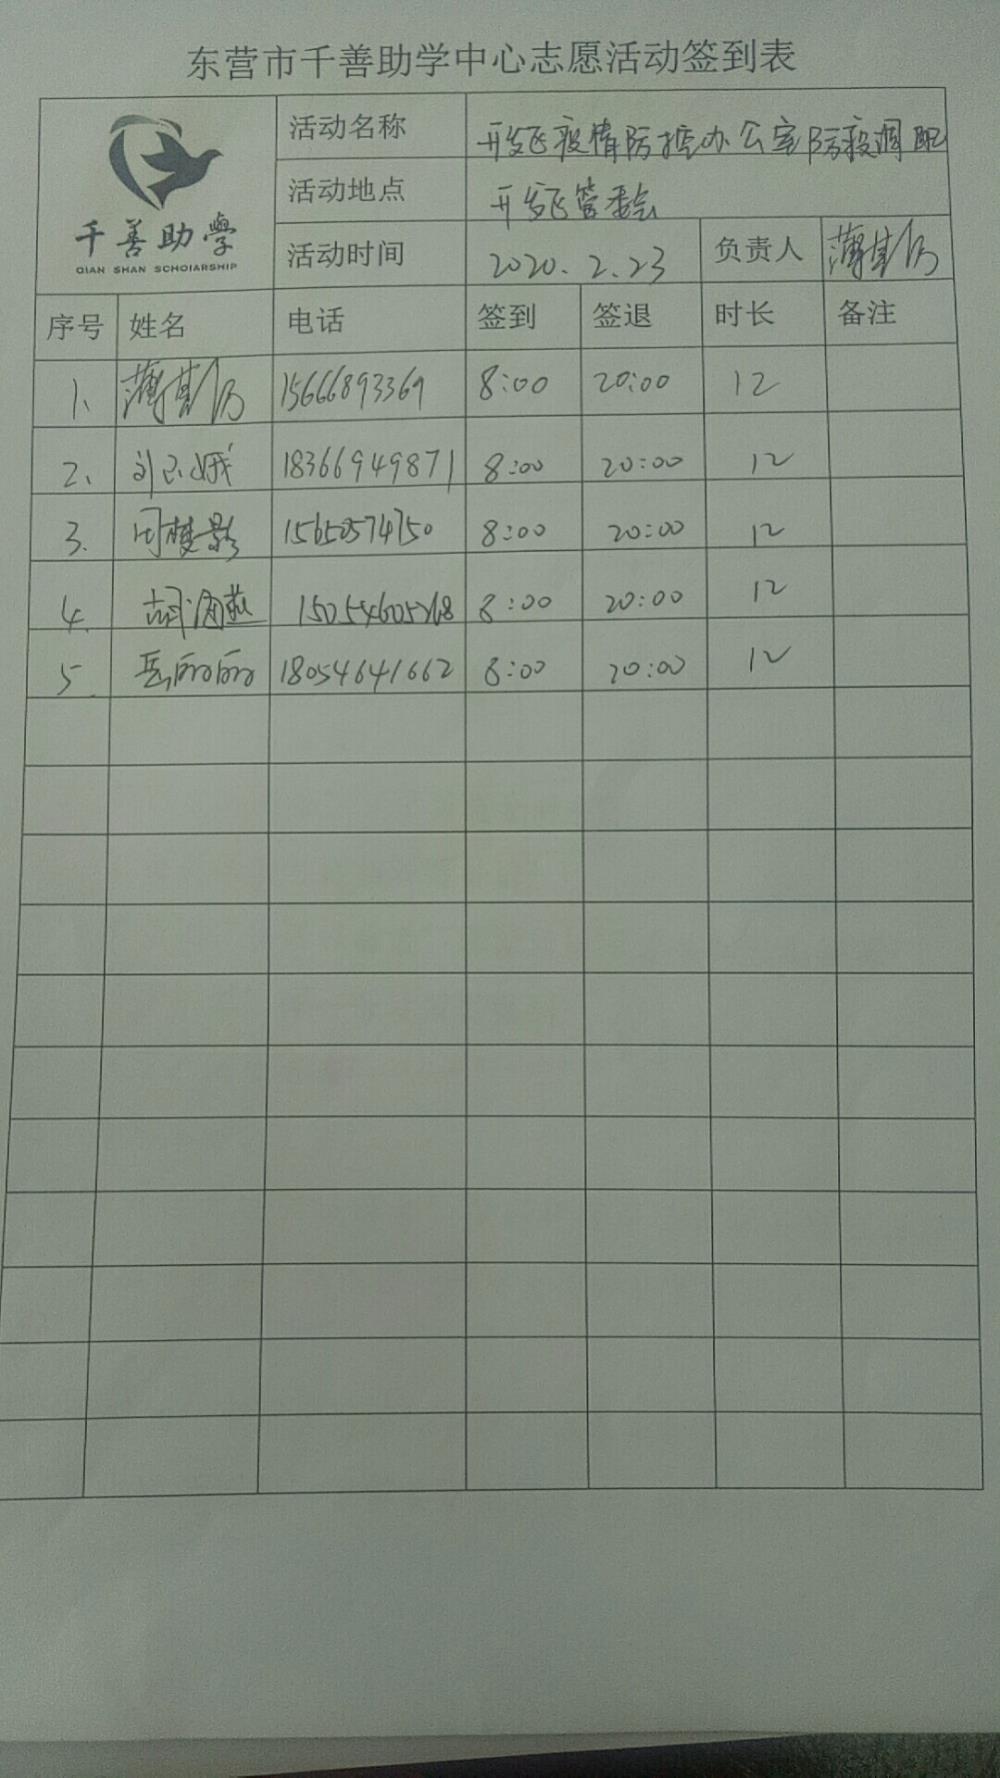 东营市千善助学中心志愿活动签到表
千善助學
QIAN SHAN SCHOIARSHIP
活动名称 开发区疫情防控办公室防疫调配
活动地点 开发区管委会
活动时间 2020.2.23 负责人 薄其
序号 姓名 电话 签到 签退 时长 备注
1、 薄其 15666893369 8:00 20:00 12
2、 刘 娥 18366949871 8:00 20:00 12
3. 周梦影 15650574750 8:00 20:00 12
4. 胡海燕 15054605268 8:00 20:00 12
5. 岳丽丽 18054641662 8:00 20:00 12